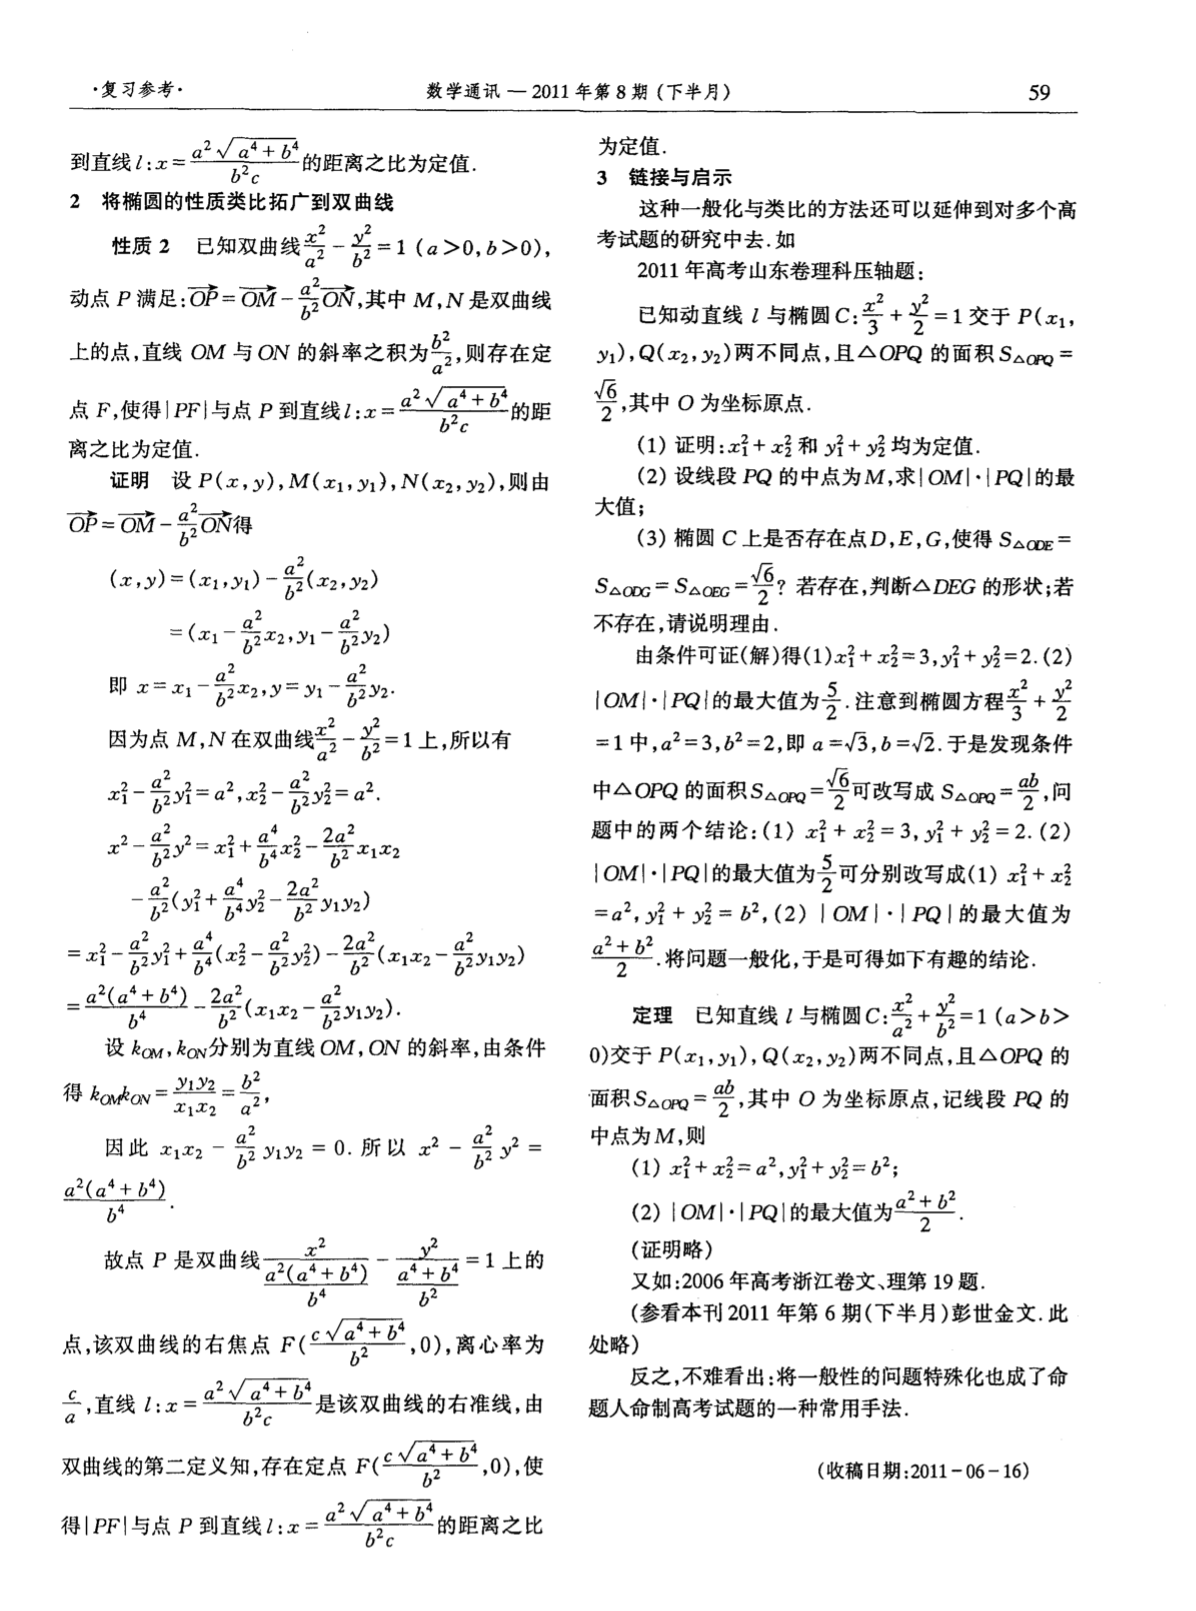 ·复习参考· 数学通讯 — 2011 年第 8 期 (下半月) 59
到直线 l: x = \frac{a^2\sqrt{a^4+b^4}}{b^2c} 的距离之比为定值.
2 将椭圆的性质类比拓广到双曲线
性质 2 已知双曲线 \frac{x^2}{a^2} - \frac{y^2}{b^2} = 1 (a>0, b>0),
动点 P 满足: \overrightarrow{OP} = \overrightarrow{OM} - \frac{a^2}{b^2}\overrightarrow{ON}, 其中 M, N 是双曲线
上的点, 直线 OM 与 ON 的斜率之积为 \frac{b^2}{a^2}, 则存在定
点 F, 使得|PF|与点 P 到直线 l: x = \frac{a^2\sqrt{a^4+b^4}}{b^2c} 的距
离之比为定值.
证明 设 P(x, y), M(x_1, y_1), N(x_2, y_2), 则由
\overrightarrow{OP} = \overrightarrow{OM} - \frac{a^2}{b^2}\overrightarrow{ON} 得
(x, y) = (x_1, y_1) - \frac{a^2}{b^2}(x_2, y_2)
= (x_1 - \frac{a^2}{b^2}x_2, y_1 - \frac{a^2}{b^2}y_2)
即 x = x_1 - \frac{a^2}{b^2}x_2, y = y_1 - \frac{a^2}{b^2}y_2.
因为点 M, N 在双曲线 \frac{x^2}{a^2} - \frac{y^2}{b^2} = 1 上, 所以有
x_1^2 - \frac{a^2}{b^2}y_1^2 = a^2, x_2^2 - \frac{a^2}{b^2}y_2^2 = a^2.
x^2 - \frac{a^2}{b^2}y^2 = x_1^2 + \frac{a^4}{b^4}x_2^2 - \frac{2a^2}{b^2}x_1x_2
- \frac{a^2}{b^2}(y_1^2 + \frac{a^4}{b^4}y_2^2 - \frac{2a^2}{b^2}y_1y_2)
= x_1^2 - \frac{a^2}{b^2}y_1^2 + \frac{a^4}{b^4}(x_2^2 - \frac{a^2}{b^2}y_2^2) - \frac{2a^2}{b^2}(x_1x_2 - \frac{a^2}{b^2}y_1y_2)
= \frac{a^2(a^4+b^4)}{b^4} - \frac{2a^2}{b^2}(x_1x_2 - \frac{a^2}{b^2}y_1y_2).
设 k_{OM}, k_{ON}分别为直线 OM, ON 的斜率, 由条件
得 k_{OM}k_{ON} = \frac{y_1y_2}{x_1x_2} = \frac{b^2}{a^2},
因此 x_1x_2 - \frac{a^2}{b^2}y_1y_2 = 0. 所以 x^2 - \frac{a^2}{b^2}y^2 =
\frac{a^2(a^4+b^4)}{b^4}.
故点 P 是双曲线 \frac{x^2}{\frac{a^2(a^4+b^4)}{b^4}} - \frac{y^2}{\frac{a^4+b^4}{b^2}} = 1 上的
点, 该双曲线的右焦点 F(\frac{c\sqrt{a^4+b^4}}{b^2}, 0), 离心率为
\frac{c}{a}, 直线 l: x = \frac{a^2\sqrt{a^4+b^4}}{b^2c} 是该双曲线的右准线, 由
双曲线的第二定义知, 存在定点 F(\frac{c\sqrt{a^4+b^4}}{b^2}, 0), 使
得|PF|与点 P 到直线 l: x = \frac{a^2\sqrt{a^4+b^4}}{b^2c} 的距离之比
为定值.
3 链接与启示
这种一般化与类比的方法还可以延伸到对多个高
考试题的研究中去. 如
2011 年高考山东卷理科压轴题:
已知动直线 l 与椭圆 C: \frac{x^2}{3} + \frac{y^2}{2} = 1 交于 P(x_1,
y_1), Q(x_2, y_2)两不同点, 且△OPQ 的面积 S_{△OPQ} =
\frac{\sqrt{6}}{2}, 其中 O 为坐标原点.
(1) 证明: x_1^2 + x_2^2 和 y_1^2 + y_2^2 均为定值.
(2) 设线段 PQ 的中点为 M, 求|OM|·|PQ|的最
大值;
(3) 椭圆 C 上是否存在点 D, E, G, 使得 S_{△ODE} =
S_{△ODG} = S_{△OEG} = \frac{\sqrt{6}}{2}? 若存在, 判断△DEG 的形状; 若
不存在, 请说明理由.
由条件可证(解)得(1) x_1^2 + x_2^2 = 3, y_1^2 + y_2^2 = 2. (2)
|OM|·|PQ|的最大值为 \frac{5}{2}. 注意到椭圆方程 \frac{x^2}{3} + \frac{y^2}{2}
= 1 中, a^2 = 3, b^2 = 2, 即 a = \sqrt{3}, b = \sqrt{2}. 于是发现条件
中△OPQ 的面积 S_{△OPQ} = \frac{\sqrt{6}}{2} 可改写成 S_{△OPQ} = \frac{ab}{2}, 问
题中的两个结论: (1) x_1^2 + x_2^2 = 3, y_1^2 + y_2^2 = 2. (2)
|OM|·|PQ|的最大值为 \frac{5}{2} 可分别改写成(1) x_1^2 + x_2^2
= a^2, y_1^2 + y_2^2 = b^2, (2) |OM|·|PQ|的最大值为
\frac{a^2+b^2}{2}. 将问题一般化, 于是可得如下有趣的结论.
定理 已知直线 l 与椭圆 C: \frac{x^2}{a^2} + \frac{y^2}{b^2} = 1 (a>b>
0)交于 P(x_1, y_1), Q(x_2, y_2)两不同点, 且△OPQ 的
面积 S_{△OPQ} = \frac{ab}{2}, 其中 O 为坐标原点, 记线段 PQ 的
中点为 M, 则
(1) x_1^2 + x_2^2 = a^2, y_1^2 + y_2^2 = b^2;
(2) |OM|·|PQ|的最大值为 \frac{a^2+b^2}{2}.
(证明略)
又如: 2006 年高考浙江卷文、理第 19 题.
(参看本刊 2011 年第 6 期(下半月)彭世金文. 此
处略)
反之, 不难看出: 将一般性的问题特殊化也成了命
题人命制高考试题的一种常用手法.
(收稿日期: 2011-06-16)